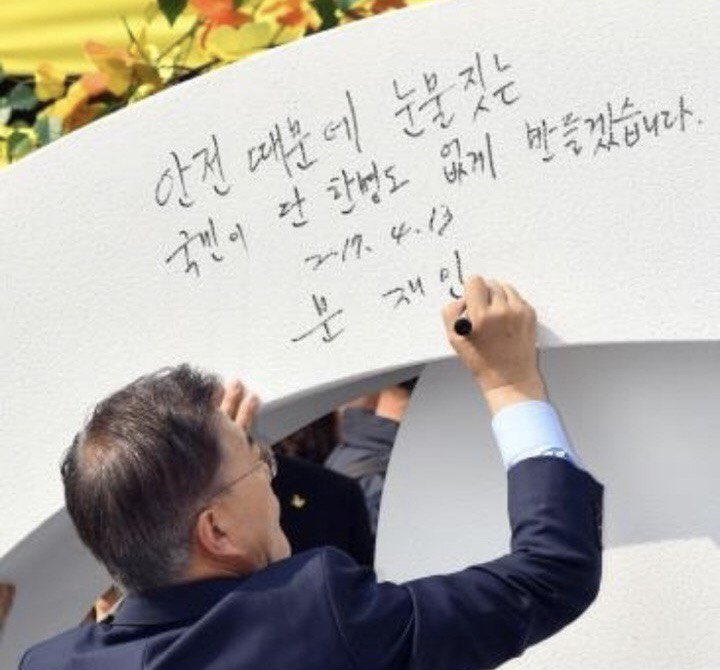 안전 때문에 눈물짓는
국민이 단 한명도 없게 만들겠습니다.
2017. 4. 13
문 재 인